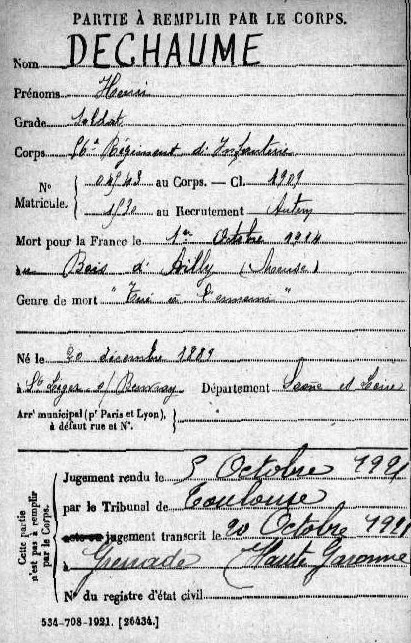 PARTIE À REMPLIR PAR LE CORPS.
Nom DECHAUME
Prénoms Henri
Grade Soldat
Corps 56e Régiment d'Infanterie
N° Matricule. { 04543 au Corps. — Cl. 1909
1530 au Recrutement Autun
Mort pour la France le 1er Octobre 1914
au Bois d'Ailly (Meuse)
Genre de mort "Tué à l'ennemi"
Né le 20 décembre 1889
à St Léger s/ Beuvray Département Saône et Loire
Arrt municipal (pr Paris et Lyon), à défaut rue et N°. {
Cette partie n'est pas à remplir par le Corps.
Jugement rendu le 5 Octobre 1921
par le Tribunal de Toulouse
jugement transcrit le 20 Octobre 1921
à Grenade (Haute Garonne
N° du registre d'état civil
534-708-1921. [26434.]